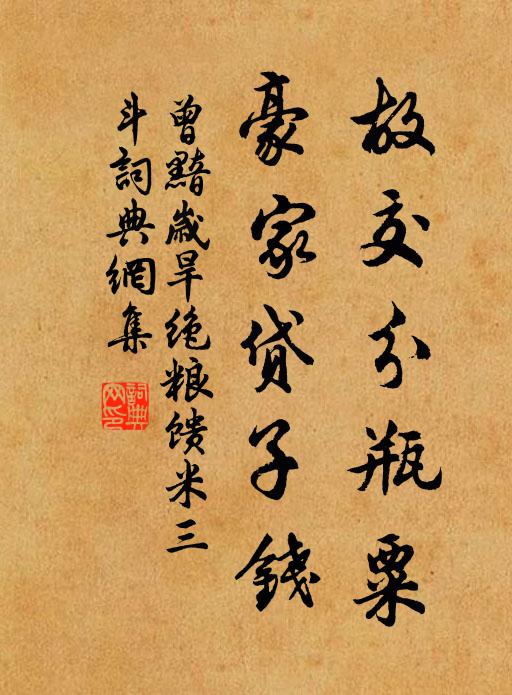 故交分瓶粟
豪家貸子錢
曾黯歲旱绝粮馈米三
斗詞典網集
詞典
网印